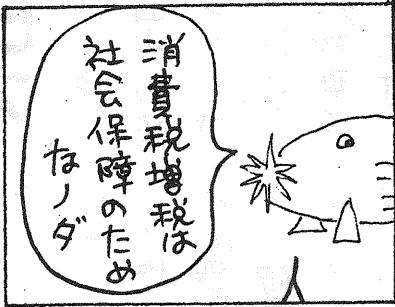 消費税増税は
社会保障のため
なノダ